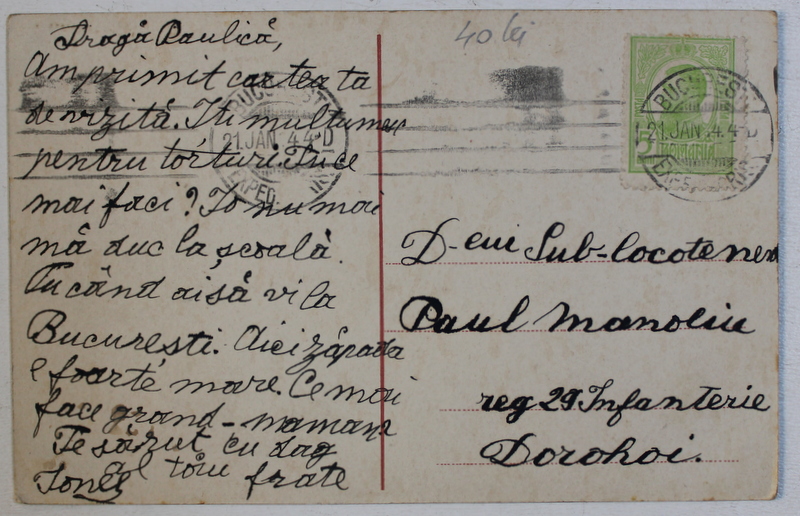 Dragă Paulică,
Am primit cartea ta
de vizită. Iti multumesc
pentru torturi. Tu ce
mai faci? Io nu mai
mă duc la școală.
Tu când aisă vi la
Bucuresti. Aici zăpada
e foarte mare. Ce mai
face grand-maman
Te sărut cu dag
al tău frate
Ionel
40 lei
BUCUREST
21.JAN.4.4-D
EXPED
BUCUREST
21.JAN.4.4-D
D-lui Sub-locotenent
Paul Manoliu
reg 29 Infanterie
Dorohoi.